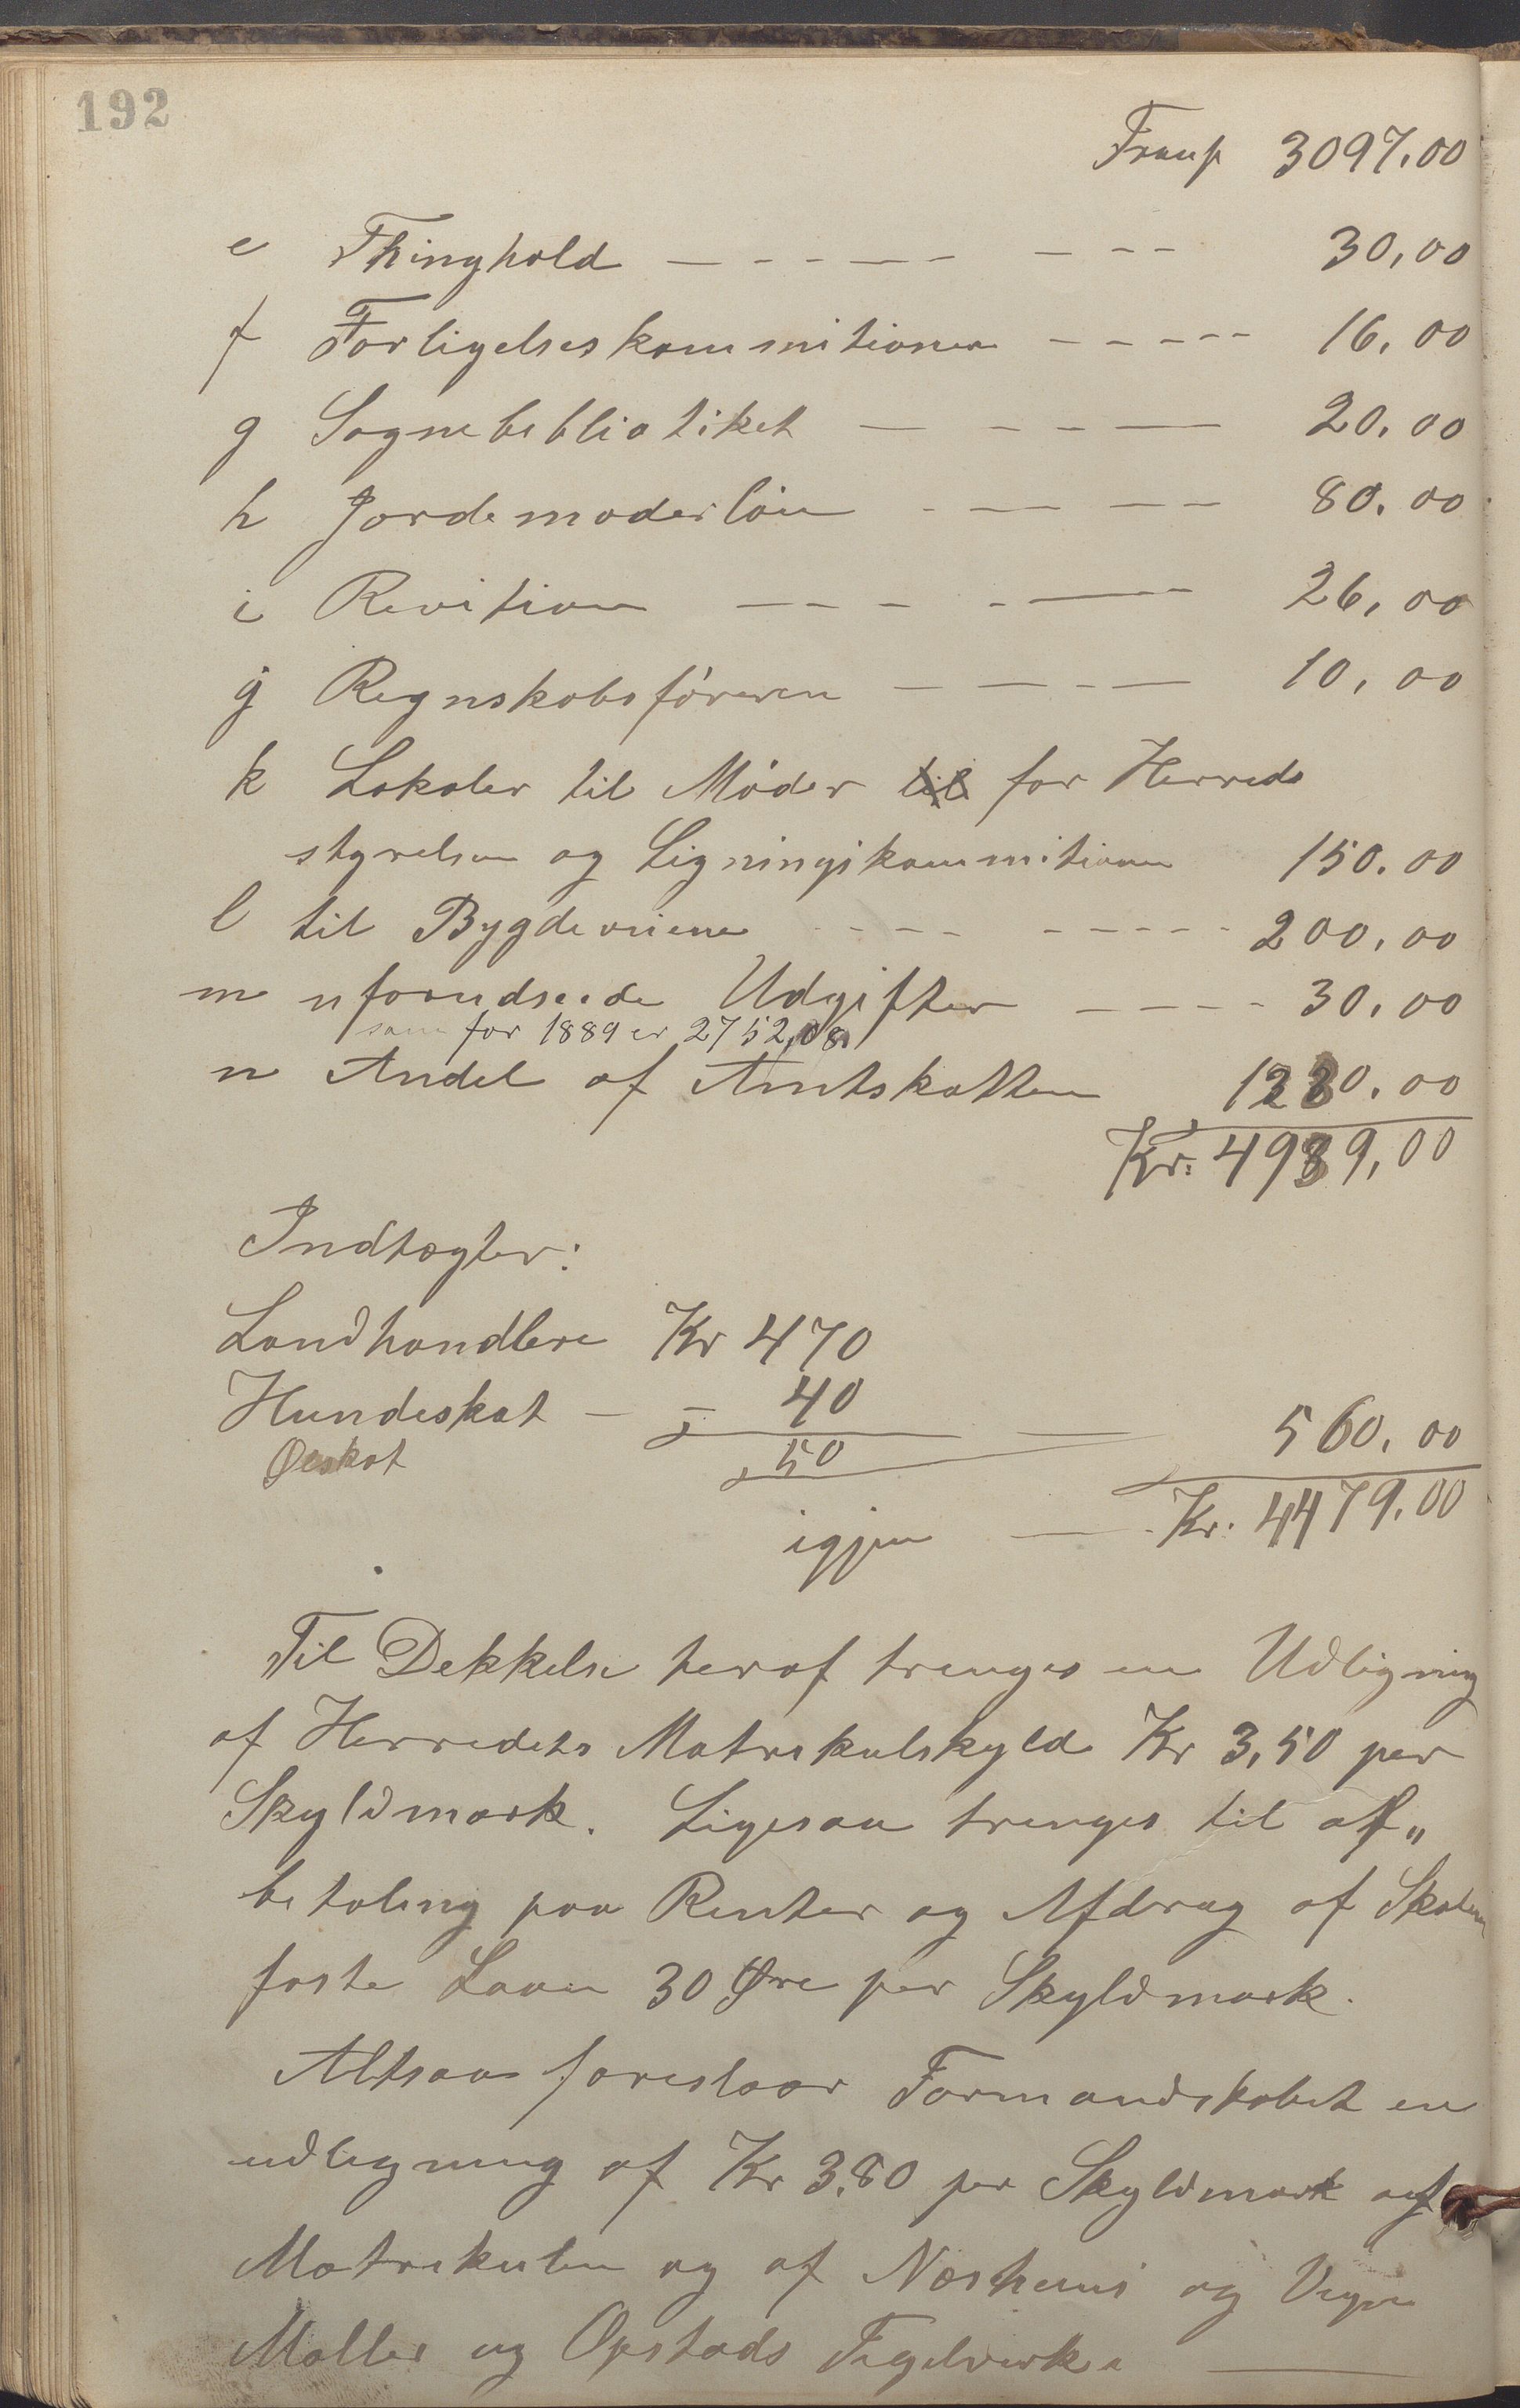 192
Transp 3097.00
e Thinghold — - - - — - — - - 30,00
f Forligelseskommitionen - - - - - 16,00
g Sognebibliotiket — - - — 20.00
h Jordemoderlön - — — - - 80.00
i Revition — - - - — 26,00
j Regnskobsföreren — — - — 10,00
k Lokaler til Möder til for Herreds
styrelsen og Ligningskommitionen 150.00
l til Bygdeveiene - - - - - - - - 200,00
m uforudseede Udgifter — - - - 30,00
som for 1889 er 2752,08
n Andel af Amtskatten 1330.00
Kr. 4989,00
Indtægter:
Landhandlere Kr 470
Hundeskat — - 40 — 560,00
Ølskat 50
igjen — Kr. 4479.00
Til Dekkelse heraf trenges en Udligning
af Herredets Matrikulskyld Kr 3,50 per
Skyldmark. Ligesaa trenges til af„
betaling paa Renter og Afdrag af Skolens
faste Laan 30 Øre per Skyldmark.
Altsaa foreslaar Formandskabet en
udligning af Kr 3.80 per Skyldmark af
Matrikulen og af Næsheims og
Møller og Opstads Teglverk